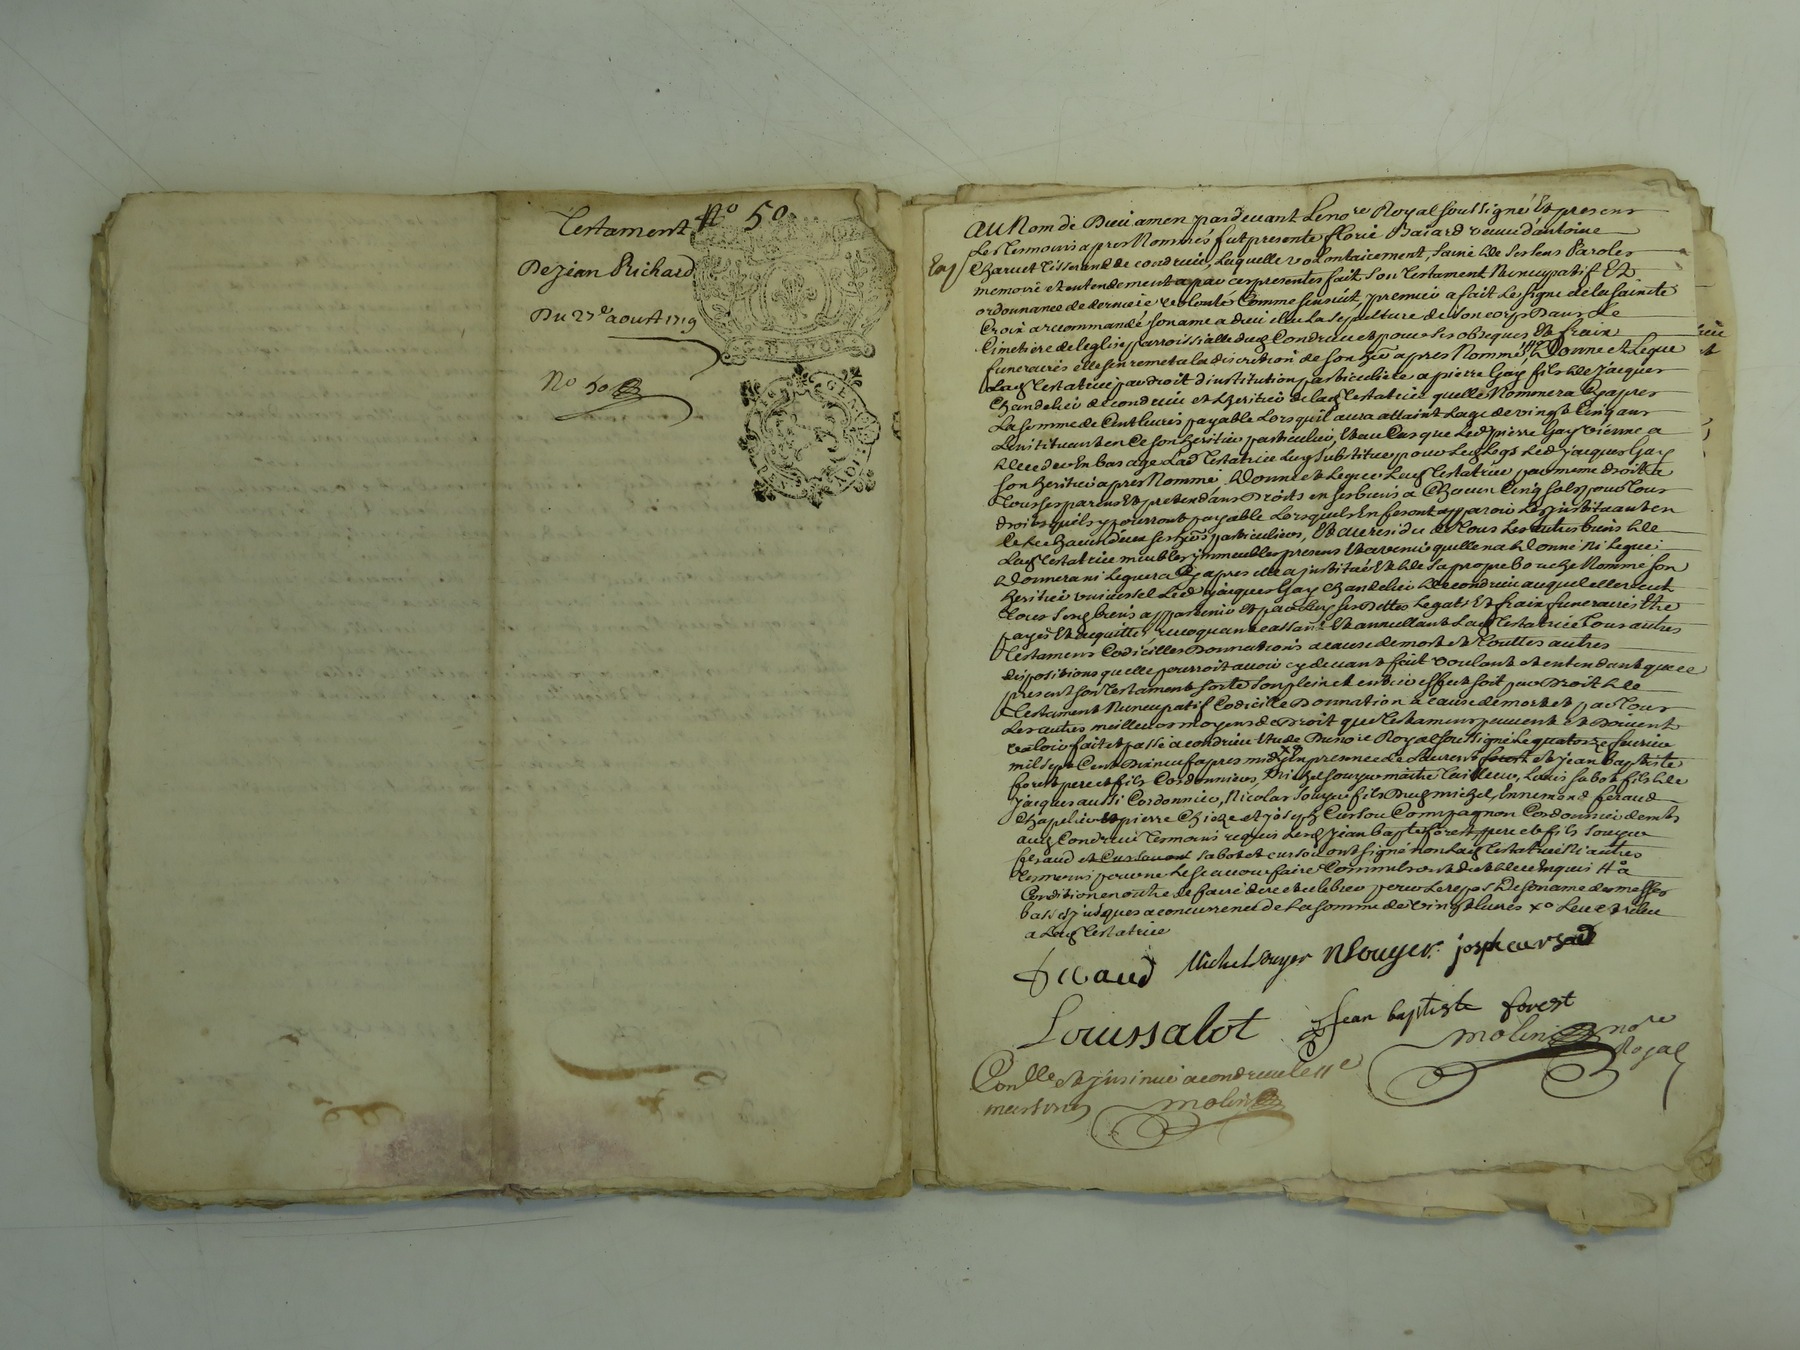 Testament N.o 50
De Jean Richard
Du 27.e aoust 1719
N.o 50
Au Nom de Dieu amen pardevant Le no.re Royal soussigné Et presens
Les Tesmoins apres Nommés fut presente florie Baiard veuve dantoine
Charvet Tisserand de condrieu, Laquelle volontairement, saine de ses sens Paroles
memoire et entendement a par ces presentes fait Son Testament Nuncupatif Et
ordonnance de derniere volonté Comme sensuit, premier a fait Le signe de la sainte
Croix a recommandé son ame a dieu elleu La sepulture de son corps Dans Le
Cimetiere de leglise parroissialle dud Condrieu et pour ses obseques Et fraix
funeraires elle sen remet a la discretion de son her. apres Nommé H Donne et Legue
Lad Testatrice par droit d'institution particuliere a pierre Gay fils de Jacques
Chandelier de condrieu et heritier de lad Testatrice quelle Nommera Cy apres
La somme de Cent livres payable Lorsquil aura attaint Lage de vingt Cinq ans
Linstituant en Ce son heritier particulier, Et au Cas que Led pierre Gay vienne a
deceder En bas age Lad Testatrice Luy substitue pour Led Legs Led Jacques Gay
son heritier apres Nommé. Donne et Legue Lad Testatrice par meme droit a
Tous ses parens Et pretendans Droits en ses biens a Chacun Cinq sols pour Tous
droits quils y pourront payable Lorsquils En feront apparoir Les instituant en
ses her.s particuliers, Et au residu de Tous Les autres biens de
Lad Testatrice meubles immeubles presens Et avenir quelle na Donné Ni Legué
Donnera ni Leguera Cy apres elle a institué Et de sa propre bouche Nommé son
heritier universel Led Jacques Gay Chandelier de condrieu auquel elle veut
Tous sesd biens appartenir et par Luy ses Dettes Legats Et fraix funeraires Etre
payés Et acquittés, revoquant cassant Et annullant Lad Testatrice Tous autres
Testamens Codicilles Donnations a cause de mort et Touttes autres
dispositions quelle pourroit avoir cy devant fait voulant et entendant que Ce
present son Testament sorte son plein et entier effet soit par Droit de
Testament Nuncupatif Codicille Donnation a cause de mort et par Tous
Les autres meilleurs moyens de Droit que Testamens peuvent et Doivent
valoir fait et passé a condrieu Etude Du no.re Royal soussigné Le quatorze fevrier
mil sept Cent Dixneuf apres midy x.o En presence de Laurent forest et Jean baptiste
forest pere et fils Cordonniers, Michel souyer maitre Tailleur, Louis sabot fils de
Jacques aussi Cordonnier, Nicolas souyer fils Dud michel, Ennemond feraud
Chapelier Et pierre Chieze et Joseph Cursou Compagnon Cordonnier dem.ts
aud Condrieu Tesmoins requis Lesd Jean bapt.e forest pere et fils souyer
feraud et sabot et cursou ont signé non Lad Testatrice Ni autres
Tesmoins pour ne Le scavoir faire Comme ils ont dit de ce Enquis H a
Condition en outre de faire dire et celebrer pour Le repos De son ame des messes
basses jusques a concurrence de La somme de vingt livres x.o Leu et releu
a Lad Testatrice
feraud Michel Souyer N Souyer. joseph cursou
Louis sabot Jean baptiste forest
molin no.re
Royal
Con.lle et jnsinué a condrieu le 11.e
mars 1719
molin